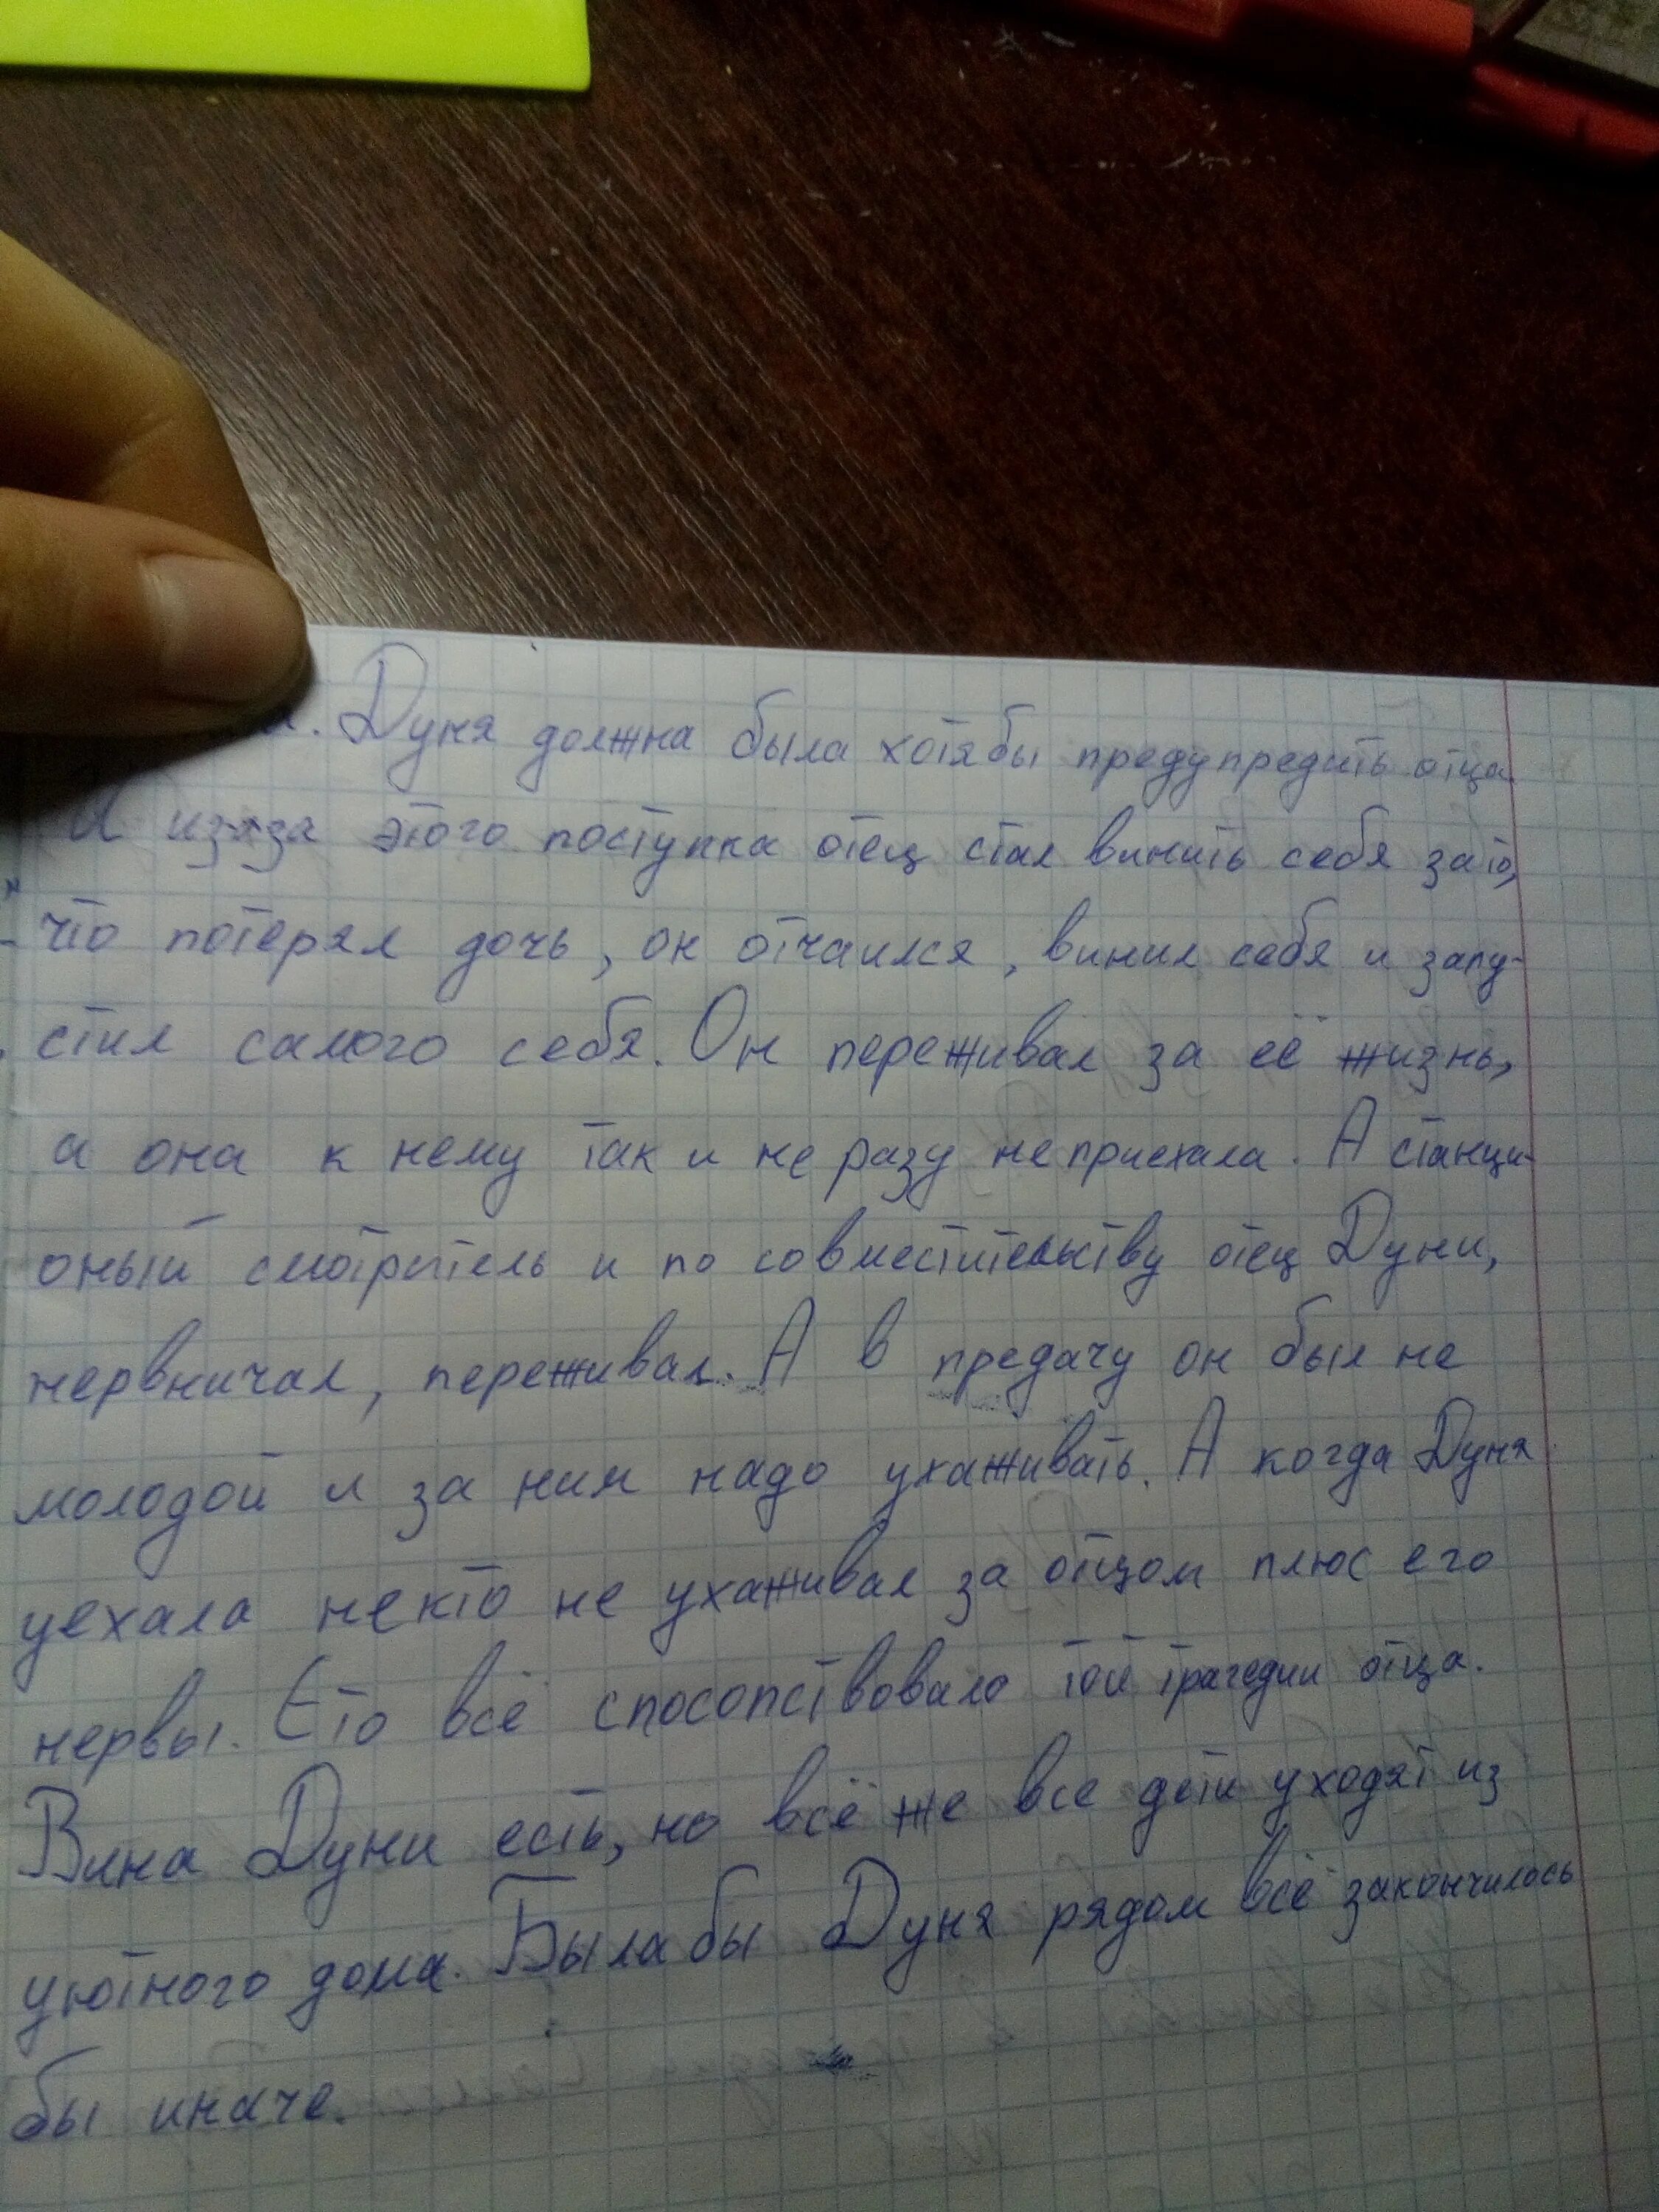 . Дуня должна была хотябы предупредить отца.
И изяза этого поступка отец стал винить себя зато,
что потерял дочь, он отчаился, винил себя и запу-
стил самого себя. Он переживал за её жизнь,
а она к нему так и не разу не приехала. А станци-
оный смотритель и по совместительству отец Дуни,
нервничал, переживал. А в предачу он был не
молодой и за ним надо ухаживать. А когда Дуня
уехала некто не ухаживал за отцом плюс его
нервы. Ето всё спосопствовало той трагедии отца.
Вина Дуни есть, но всё же все дети уходят из
уютного дома. Была бы Дуня рядом всё закончилось
бы иначе.